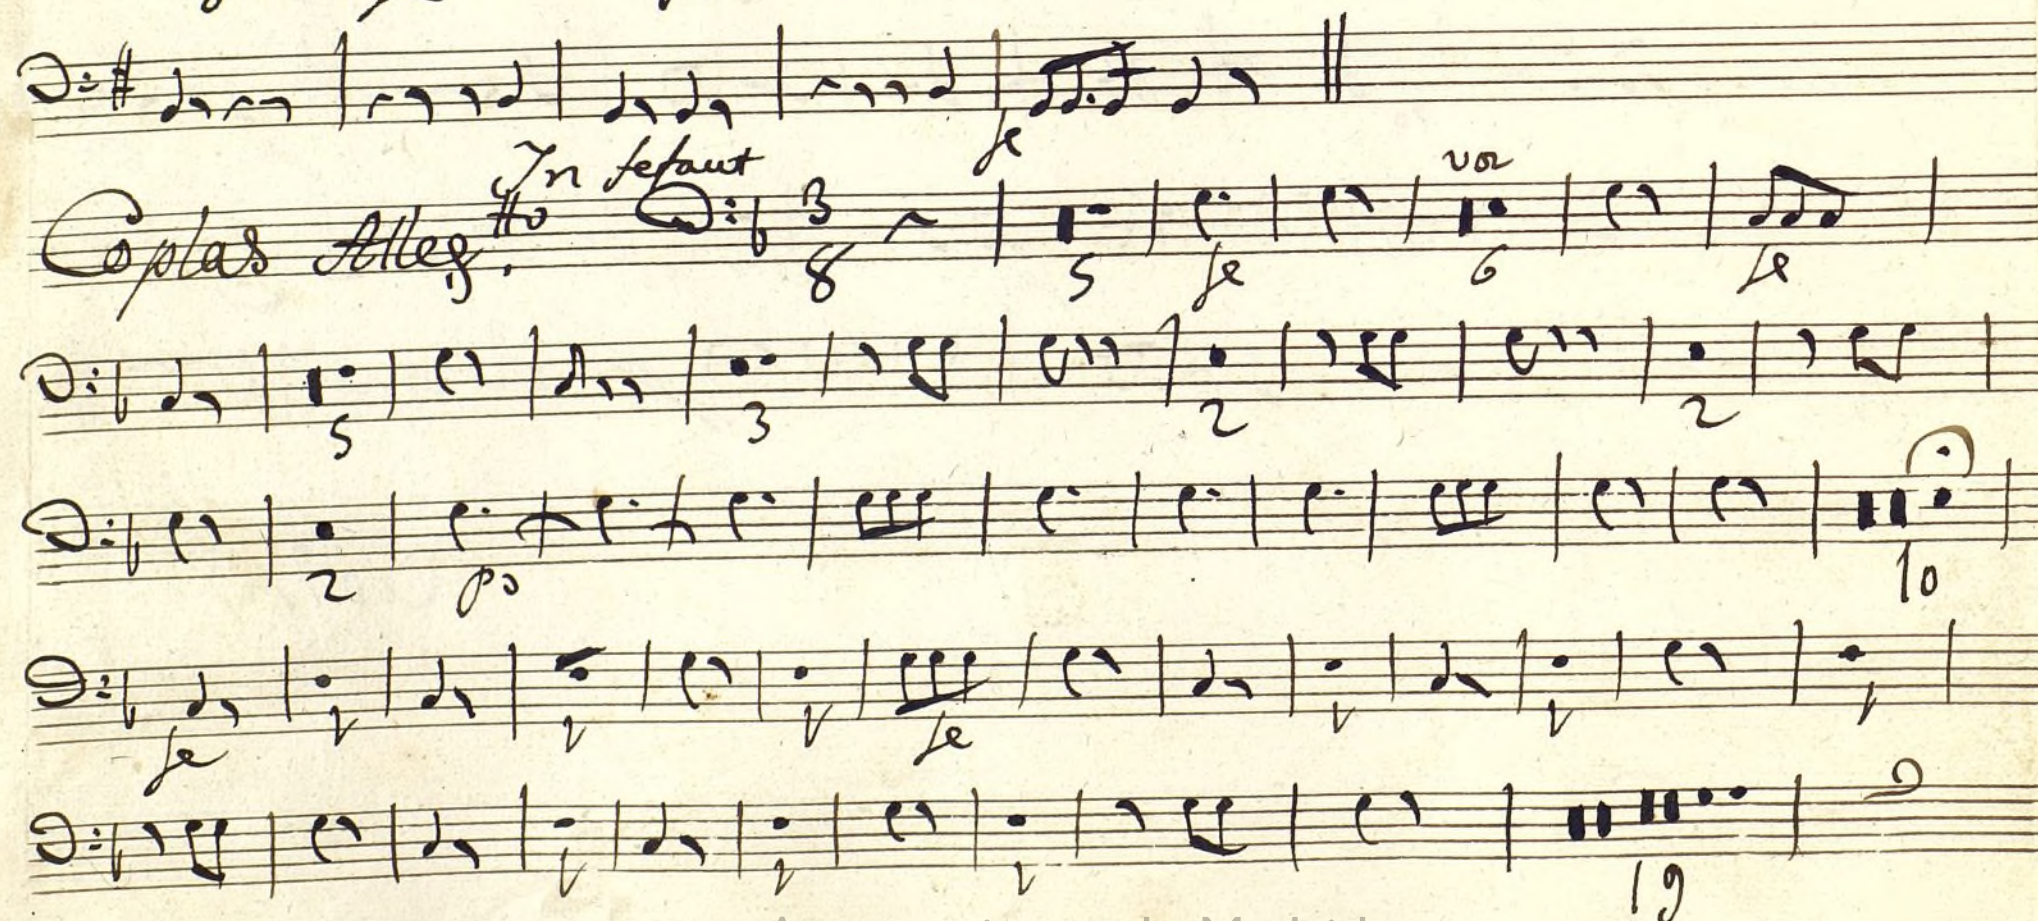 fe
In fefaut
Coplas Alleg.tto 3 8 5 fe voz 6 fe
5 3 2 2
2 po 10
fe 1 1 1 1 1 fe 1 1 1
1 1 1 19